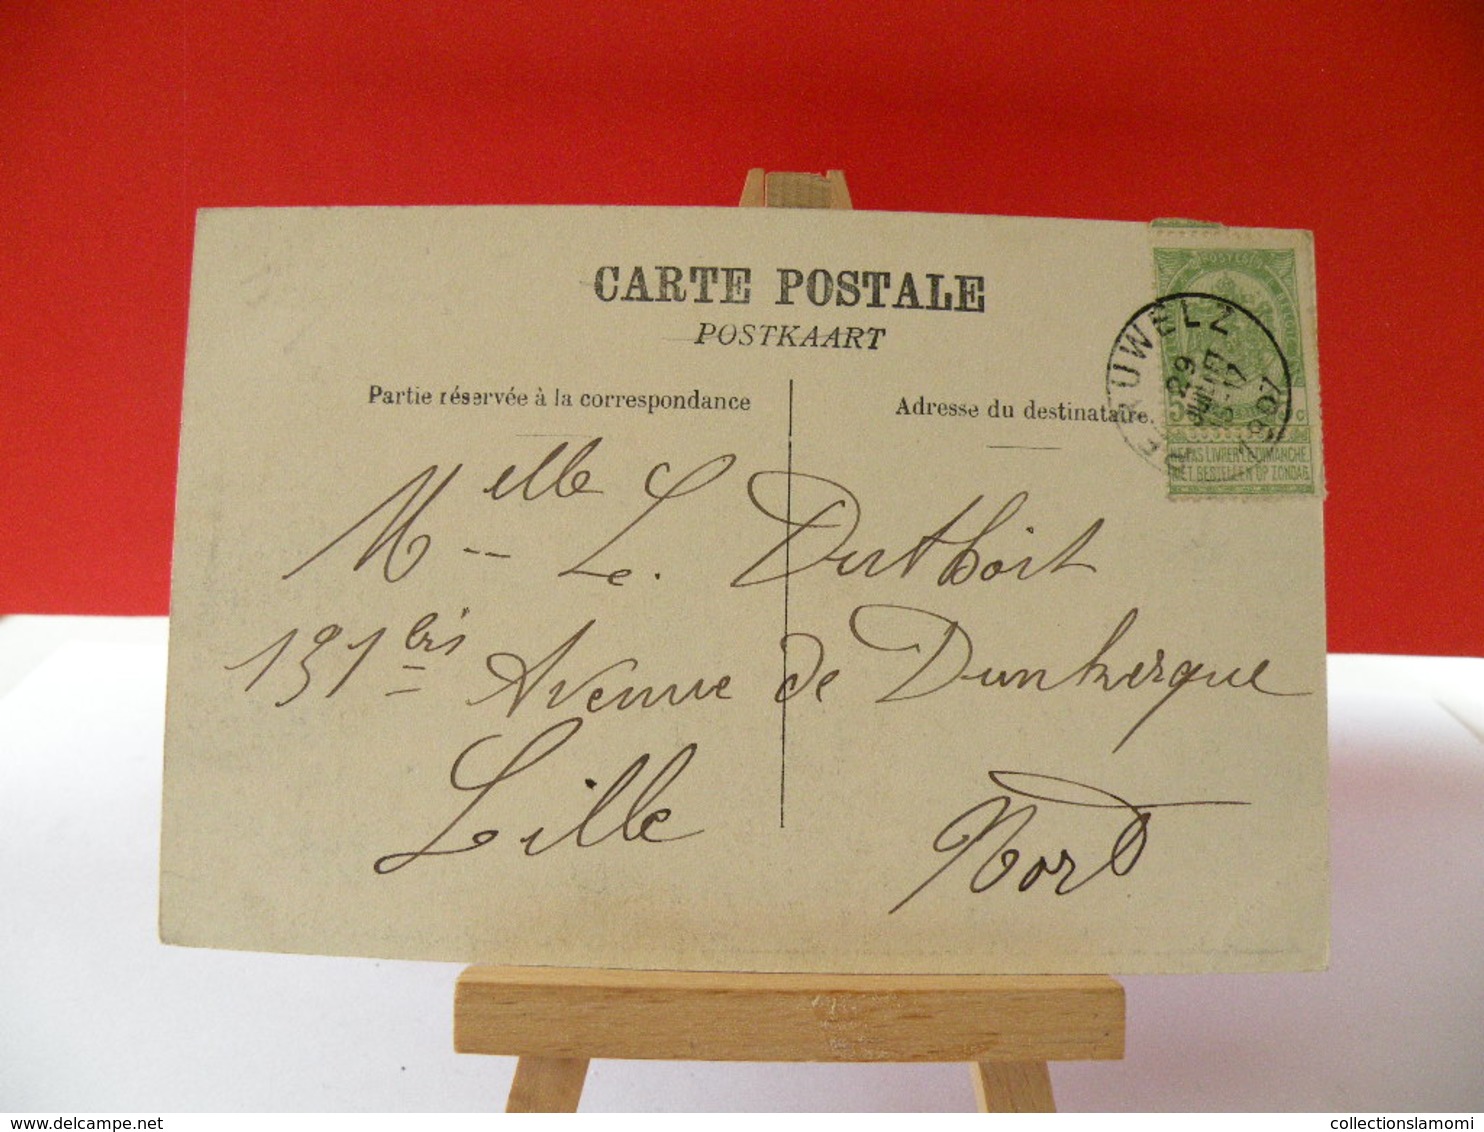 CARTE POSTALE
POSTKAART
Partie réservée à la correspondance
Adresse du destinataire.
POSTES
BELGIQUE
UWELZ
29
JUIL
1907
NE PAS LIVRER LE DIMANCHE
NIET BESTELLEN OP ZONDAG
Melle L. Duthoit
131 bis Avenue de Dunkerque
Lille
Nord
www.delcampe.net
collectionslamomi